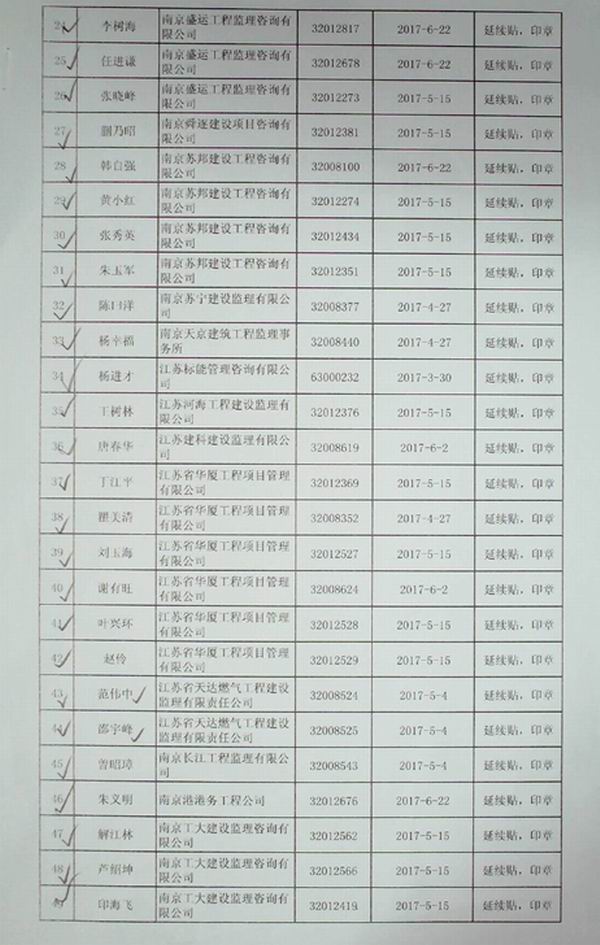 24 李树海 南京盛运工程监理咨询有 32012817 2017-6-22 延续贴，印章
限公司
25 任进谦 南京盛运工程监理咨询有 32012678 2017-6-22 延续贴，印章
限公司
26 张晓峰 南京盛运工程监理咨询有 32012273 2017-5-15 延续贴，印章
限公司
27 蒯乃昭 南京舜逐建设项目咨询有 32012381 2017-5-15 延续贴，印章
限公司
28 韩自强 南京苏邦建设工程咨询有 32008100 2017-6-22 延续贴，印章
限公司
29 黄小红 南京苏邦建设工程咨询有 32012274 2017-5-15 延续贴，印章
限公司
30 张秀英 南京苏邦建设工程咨询有 32012434 2017-5-15 延续贴，印章
限公司
31 朱玉军 南京苏邦建设工程咨询有 32012351 2017-5-15 延续贴，印章
限公司
32 陈国洋 南京苏宁建设监理有限公 32008377 2017-4-27 延续贴，印章
司
33 杨幸福 南京天京建筑工程监理事 32008440 2017-4-27 延续贴，印章
务所
34 杨进才 江苏标能管理咨询有限公 63000232 2017-3-30 延续贴，印章
司
35 王树林 江苏河海工程建设监理有 32012376 2017-5-15 延续贴，印章
限公司
36 唐春华 江苏建科建设监理有限公 32008619 2017-6-2 延续贴，印章
司
37 丁江平 江苏省华厦工程项目管理 32012369 2017-5-15 延续贴，印章
有限公司
38 瞿美清 江苏省华厦工程项目管理 32008352 2017-4-27 延续贴，印章
有限公司
39 刘玉海 江苏省华厦工程项目管理 32012527 2017-5-15 延续贴，印章
有限公司
40 谢有旺 江苏省华厦工程项目管理 32008624 2017-6-2 延续贴，印章
有限公司
41 叶兴环 江苏省华厦工程项目管理 32012528 2017-5-15 延续贴，印章
有限公司
42 赵伶 江苏省华厦工程项目管理 32012529 2017-5-15 延续贴，印章
有限公司
43 范伟中 江苏省天达燃气工程建设 32008524 2017-5-4 延续贴，印章
监理有限责任公司
44 邵宇峰 江苏省天达燃气工程建设 32008525 2017-5-4 延续贴，印章
监理有限责任公司
45 曾昭璋 南京长江工程监理有限公 32008543 2017-5-4 延续贴，印章
司
46 朱义明 南京港港务工程公司 32012676 2017-6-22 延续贴，印章
47 解江林 南京工大建设监理咨询有 32012562 2017-5-15 延续贴，印章
限公司
48 芦绍坤 南京工大建设监理咨询有 32012566 2017-5-15 延续贴，印章
限公司
49 印海飞 南京工大建设监理咨询有 32012419 2017-5-15 延续贴，印章
限公司